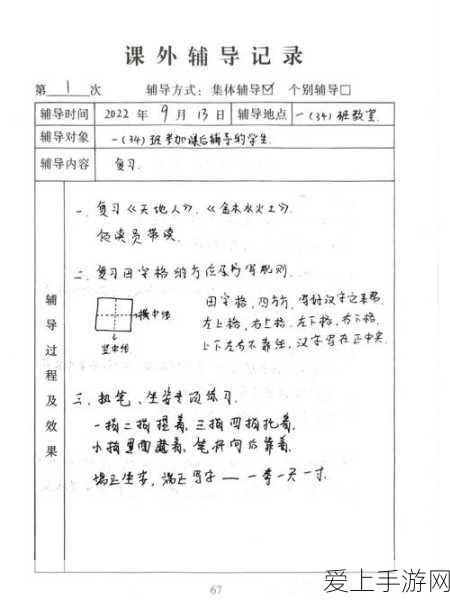 课外辅导记录
第 1 次 辅导方式：集体辅导☑ 个别辅导□
辅导时间 2022 年 9 月 13 日 辅导地点 一(34)班教室
辅导对象 一(34)班参加课后辅导的学生
辅导内容 复习.
辅导过程及效果
一、复习《天地人》、《金木水火土》.
领读员带读.
二、复习田字格的方位及书写规则.
横中线
竖中线
田字格，四方方，写好汉字它来帮.
左上格，右上格，左下格，右下格，
上下左右不靠框，汉字写在正中央.
三、执笔、坐姿专项练习.
一指二指捏着，三指四指托着，
小指里面藏着，笔杆向后靠着，
端正坐字，端正写字 — 一拳一尺一寸.
67
爱上手游网